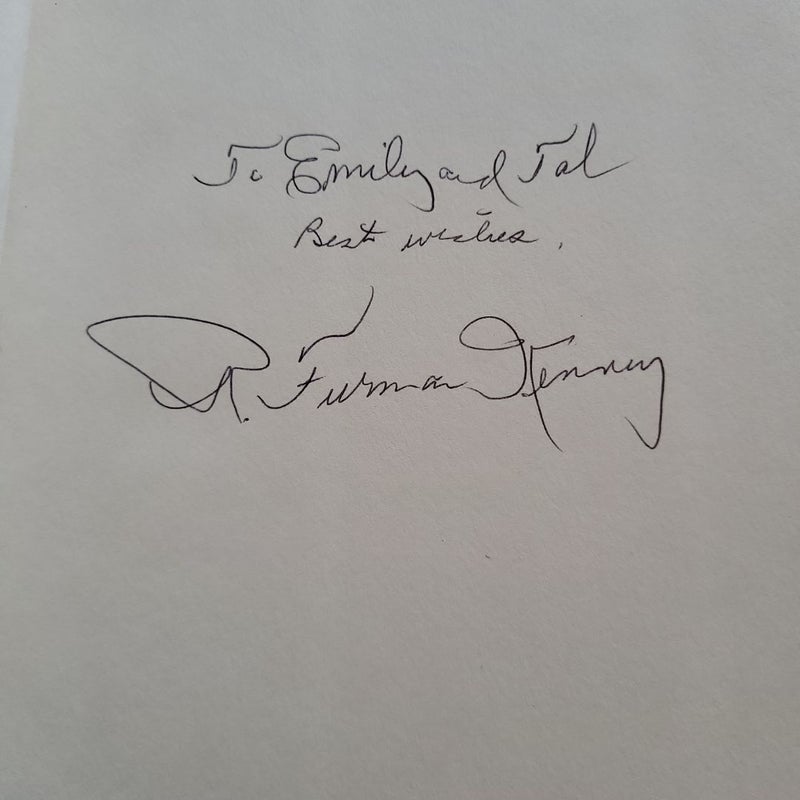 To Emily and Tal
Best wishes,
R. Furman Kenney